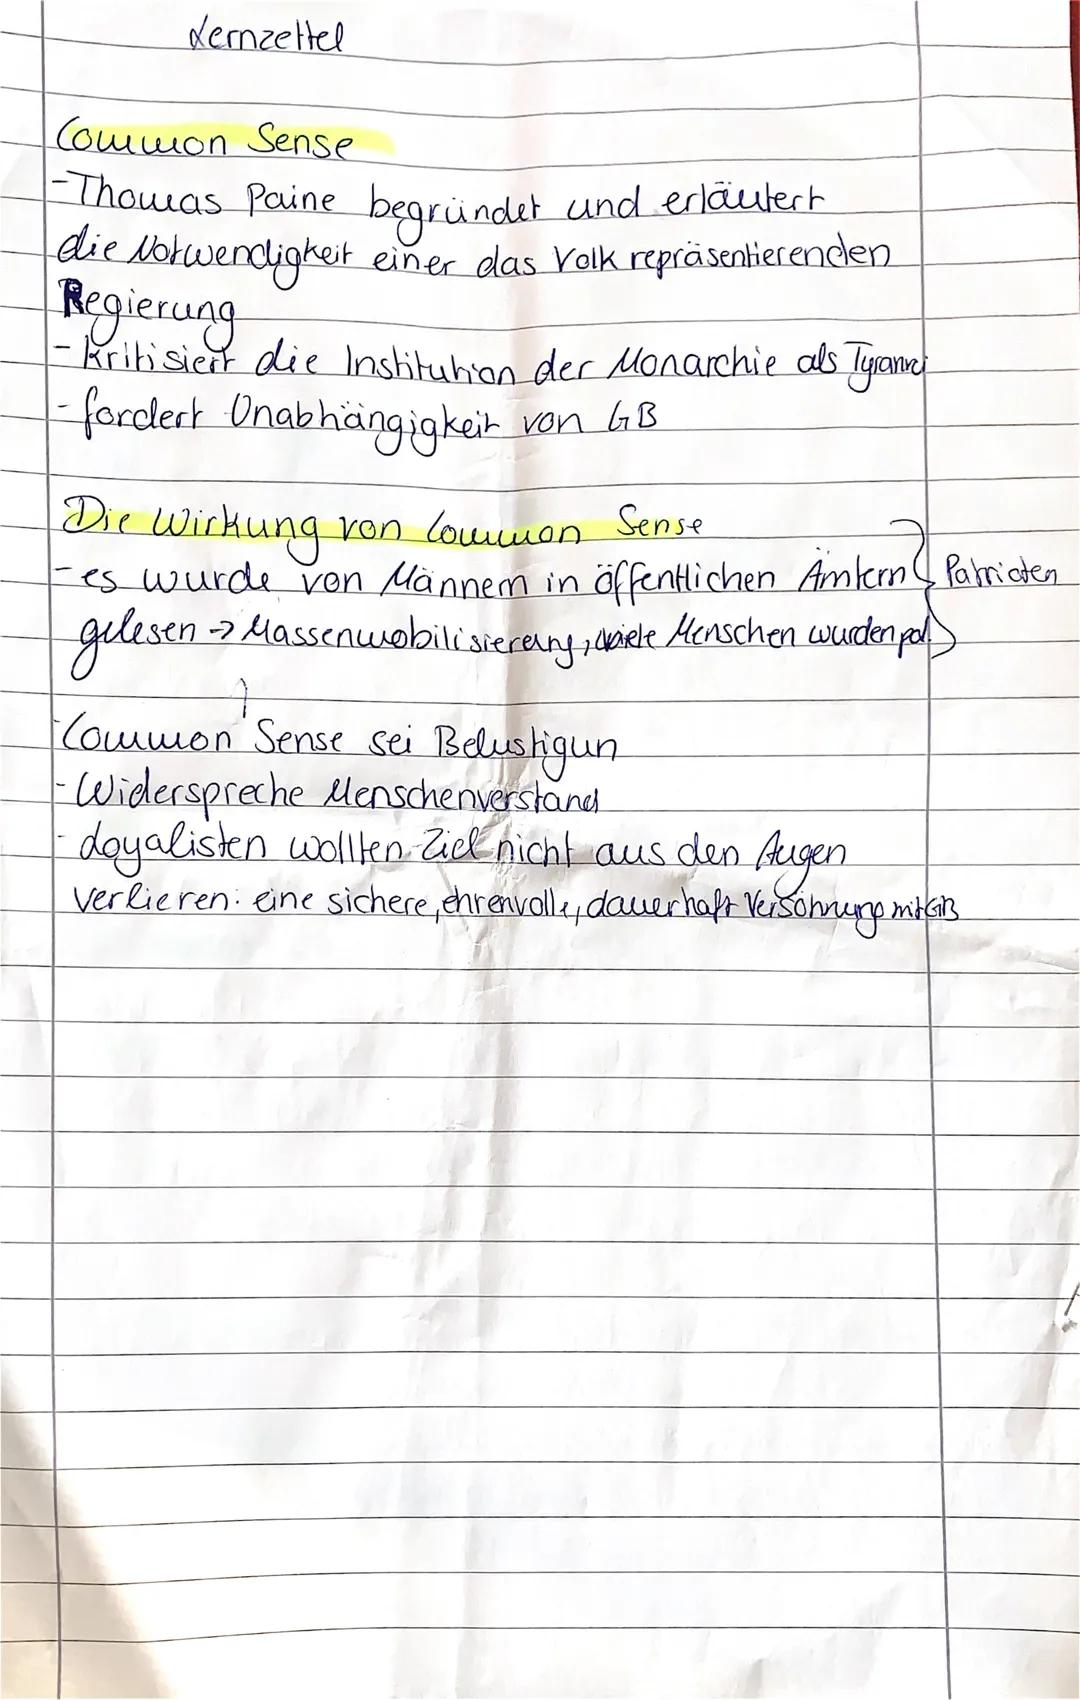 Lernzettel
Common Sense
- Thomas Paine begründet und erläutert
die Notwendigkeit einer das Volk repräsentierenden
Regierung
- kritisiert die Institution der Monarchie als Tyrannei
- fordert Unabhängigkeit von GB
Die Wirkung von Common Sense
- es wurde von Männern in öffentlichen Ämtern } Patrioten
gelesen → Massenmobilisierung, viele Menschen wurden pol.
- Common Sense sei Belustigun
- Widerspreche Menschenverstand
- Loyalisten wollten Ziel nicht aus den Augen
verlieren: eine sichere, ehrenvolle, dauerhaft Versöhnung mit GB